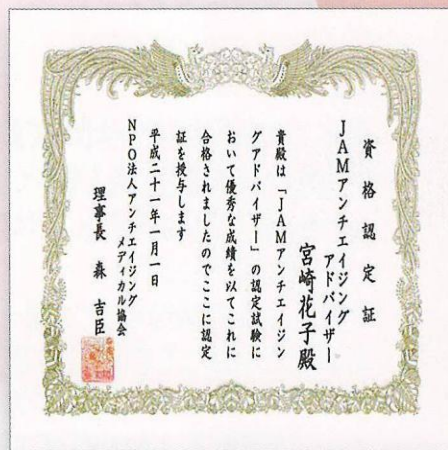 資格認定証
JAMアンチエイジング
アドバイザー
宮崎花子殿
貴殿は「JAMアンチエイジン
グアドバイザー」の認定試験に
おいて優秀な成績を以てこれに
合格されましたのでここに認定
証を授与します
平成二十一年一月一日
NPO法人アンチエイジング
メディカル協会
理事長 森 吉臣